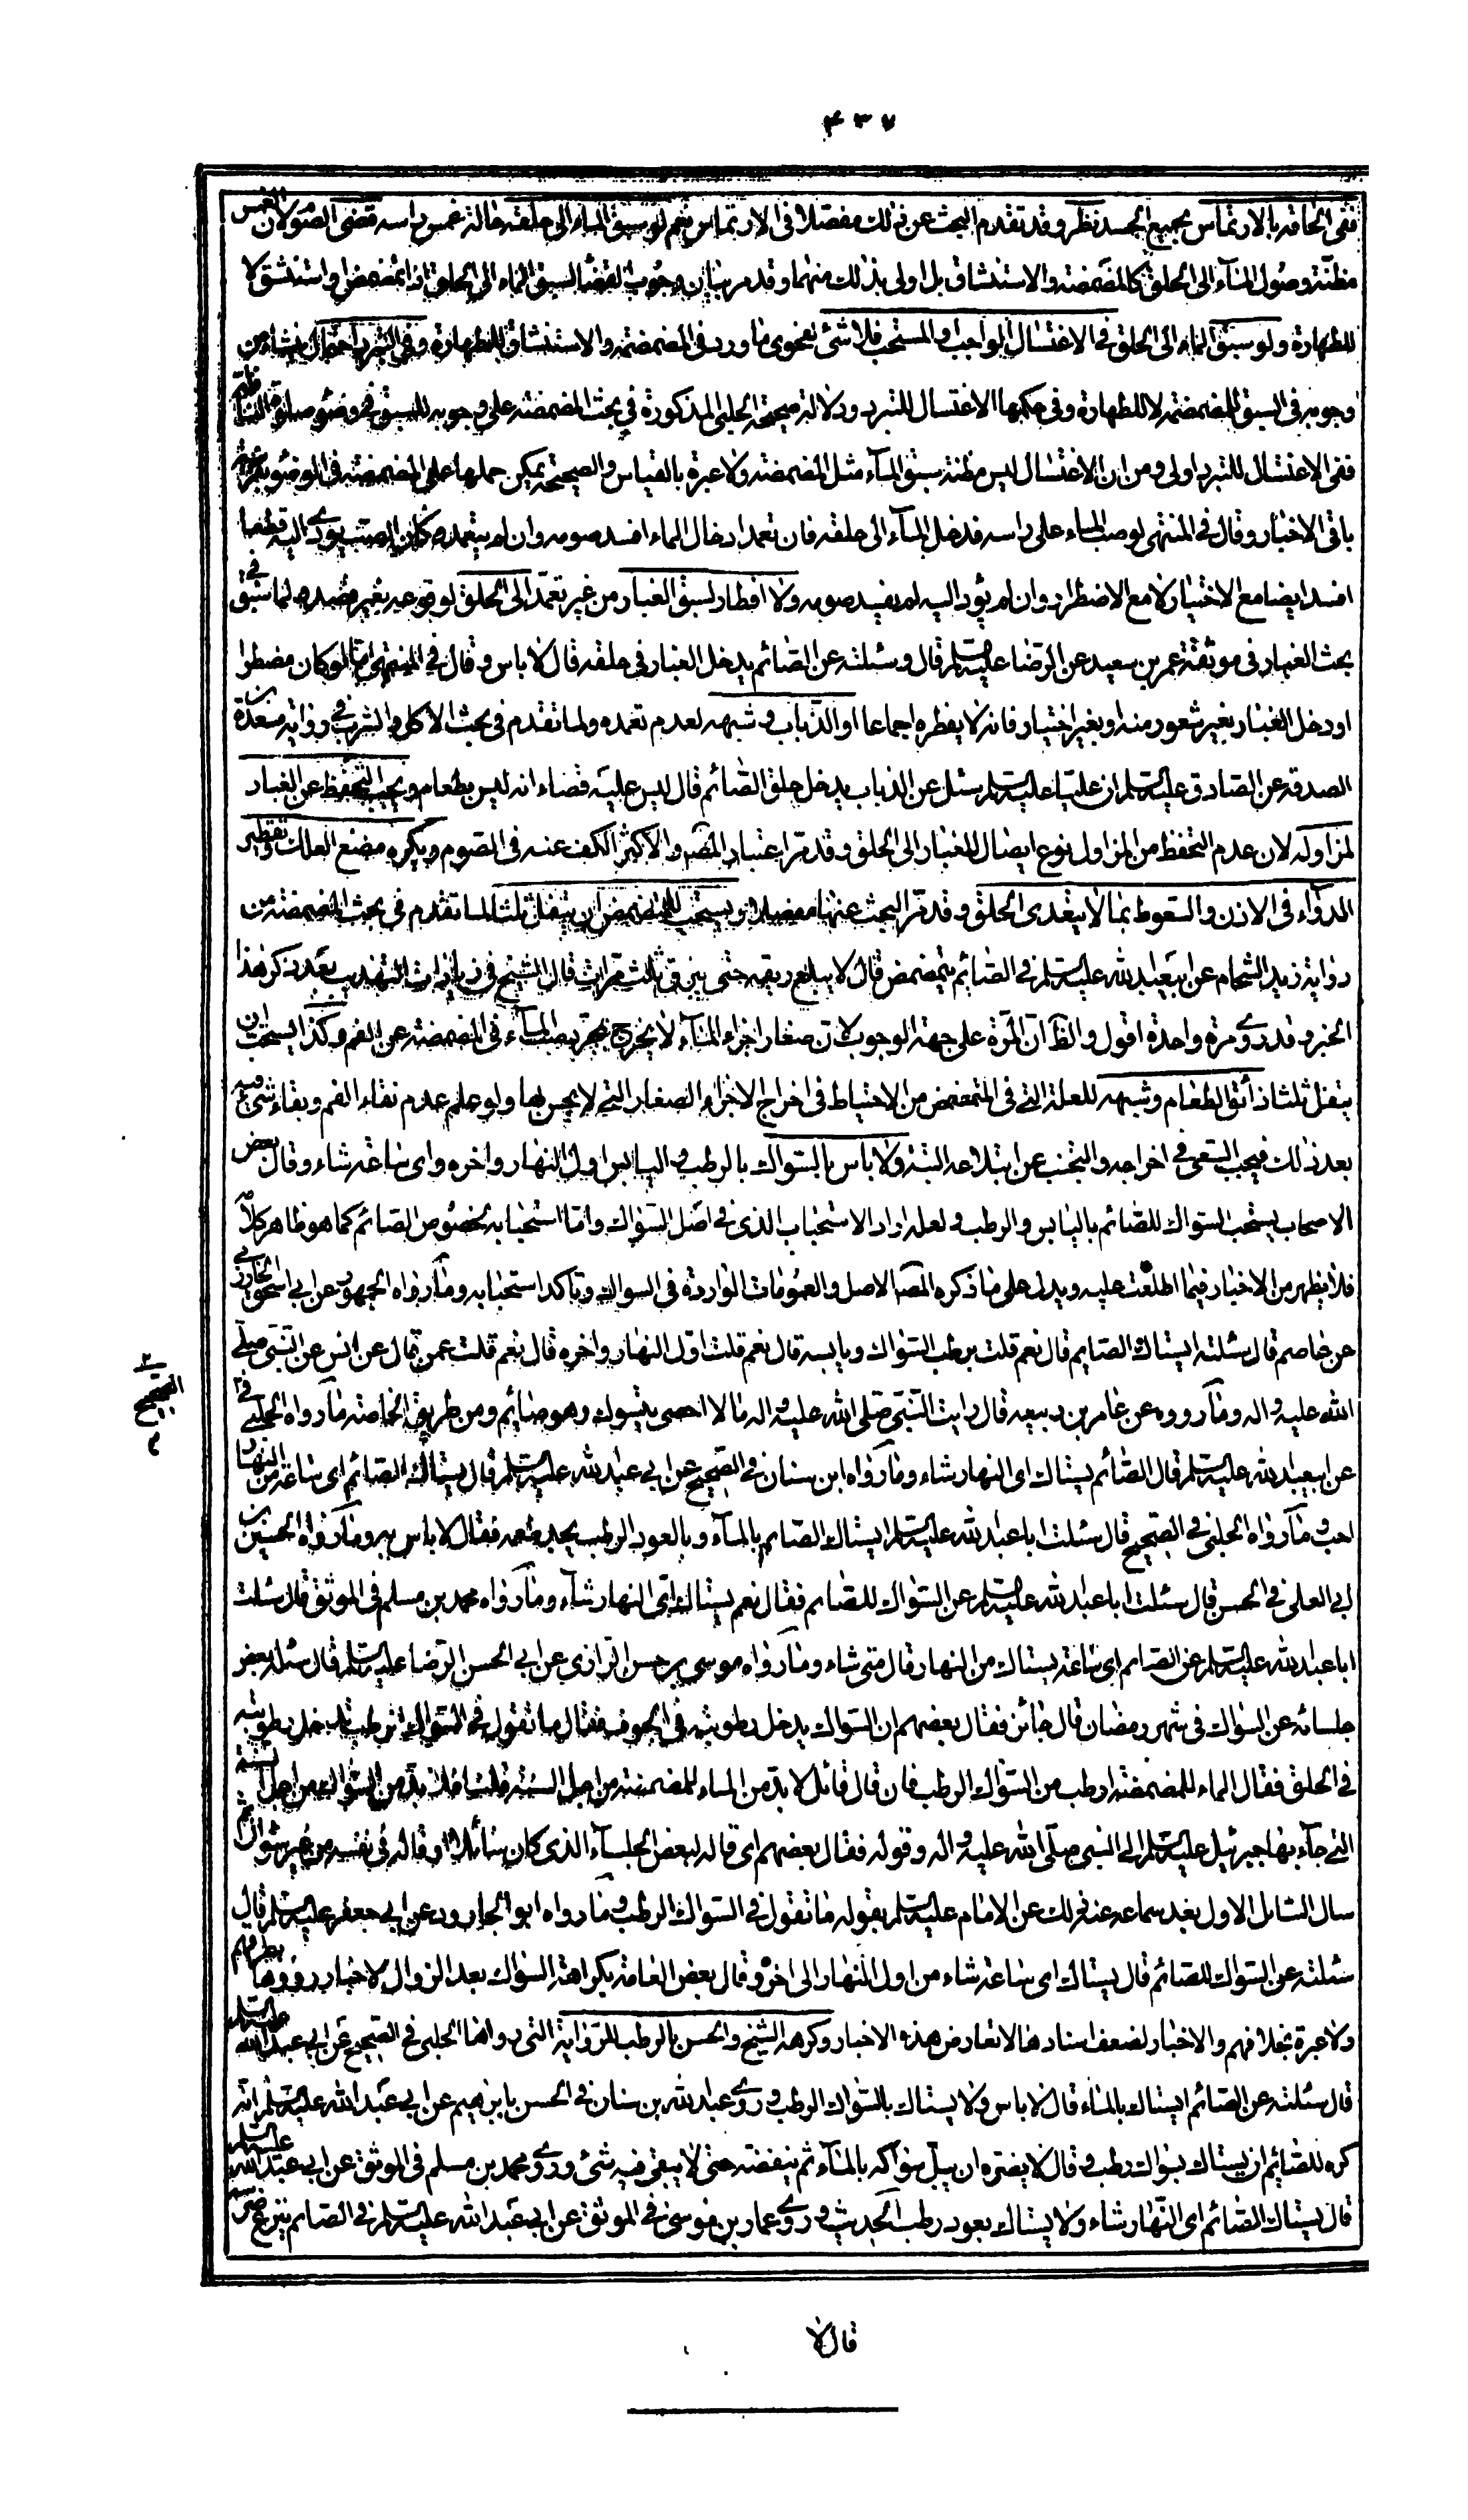 ٤٣٧
ففي الحاقه بالارتماس بجميع الجسد نظر وقد تقدم البحث عن ذلك مفصلا في الارتماس نعم لو سبق الماء الى حلقه حالة غمس راسه قضى الصوم لان الغمس
مظنة وصول الماء الى الحلق كالمضمضة والاستنشاق بل اولى بذلك منهما وقد مر بيان وجوب القضاء لسبق الماء الى الحلق اذا تمضمض او استنشق لا
للطهارة ولو سبق الماء الى الحلق في الاغتسال الواجب والمستحب فلا شئ لفحوى ما ورد في المضمضة والاستنشاق للطهارة وفي التبرد احتمال ينشا من
وجوبه في السبق للمضمضة لا للطهارة وفي حكمها الاغتسال للتبرد ودلالة صحيحة الحلبي المذكورة في بحث المضمضة على وجوبه للسبق في وضوء صلوة النافلة
ففي الاغتسال للتبرد اولى ومن ان الاغتسال ليس مظنة سبق الماء مثل المضمضة ولا عبرة بالقياس والصحيحة يمكن حملها على المضمضة في الوضوء
باقي الاخبار وقال في المنتهى لو صب الماء على راسه فدخل الماء الى حلقه فان تعمد ادخال الماء افسد صومه وان لم يتعمده وكان الصب يؤدي اليه قطعا
افسد ايضا مع الاختيار لا مع الاضطرار وان لم يؤد اليه لم يفسد صومه ولا افطار لسبق الغبار من غير تعمد الى الحلق لوقوعه بغير قصده لما سبق في
بحث الغبار في موثقة عمر بن سعيد عن الرضا عليه السلم قال وسئلته عن الصائم يدخل الغبار في حلقه قال لا باس وقال في المنتهى اما لو كان مضطرا
او دخل الغبار بغير شعور منه او بغير اختيار فانه لا يفطره اجماعا او الذباب وشبهه لعدم تعمده ولما تقدم في بحث الاكل والشرب في رواية مسعدة بن
الصدقة عن الصادق عليه السلم ان عليا عليه السلم سئل عن الذباب يدخل حلق الصائم قال ليس عليه قضاء انه ليس بطعام ويجب التحفظ عن الغبار
لمزاوله لان عدم التحفظ من المزاول نوع ايصال للغبار الى الحلق وقد مر اعتبار المصر والاكثر الكف عنه في الصوم ويكره مضغ العلك وتقطير
الدواء في الاذن والسعوط بما لا يتعدى الحلق وقد مر البحث عنها مفصلا ويستحب للمتمضمض ان يتفل ثلثا لما تقدم في بحث المضمضة من
رواية زيد الشحام عن ابيعبد الله عليه السلم في الصائم يتمضمض قال لا يبلع ريقه حتى يبزق ثلث مرات قال الشيخ في زيادات التهذيب بعد ذكر هذا
الخبر وقد روي مرة واحدة اقول والظ ان المرة على جهة الوجوب لان صغار اجزاء الماء لا يخرج بمجرد صب الماء في المضمضة عن الفم وكذا يستحب ان
يتفل ثلثا ذائق الطعام وشبهه للعلة التي في المتمضمض من الاحتياط في اخراج الاجزاء الصغار التي لا يحس بها ولو علم عدم نقاء الفم وبقاء شئ فيه
بعد ذلك فيجب السعي في اخراجه والتجنب عن ابتلاعه البتة ولا باس بالسواك بالرطب واليابس اول النهار واخره واى ساعة شاء وقال بعض
الاصحاب يستحب السواك للصائم باليابس والرطب ولعله اراد الاستحباب الذي في اصل السواك واما استحبابه بخصوص الصائم كما هو ظاهر كلامه
فلا يظهر من الاخبار فيما اطلعت عليه ويدل على ما ذكره المص الاصل والعمومات الواردة في السواك وتاكد استحبابه وما رواه الجمهور عن ابي اسحق الخوارزمي
عن عاصم قال سئلته ايستاك الصايم قال نعم قلت برطب السواك ويابسه قال نعم قلت اول النهار واخره قال نعم قلت عمن قال عن انس عن النبي صلى
الله عليه واله وما رووه عن عامر بن ربيعه قال رايت النبي صلى الله عليه واله ما لا احصى يتسوك وهو صايم ومن طريق الخاصة ما رواه الحلبي في
الصحيح
عن ابيعبد الله عليه السلم قال الصائم يستاك اى النهار شاء وما رواه ابن سنان في الصحيح عن ابي عبد الله عليه السلم قال يستاك الصائم اى ساعة من النهار
احب وما رواه الحلبي في الصحيح قال سئلت ابا عبد الله عليه السلم ايستاك الصايم بالماء وبالعود الرطب يجد طعمه فقال لا باس به وما رواه الحسين بن
ابي العلى في الحسن قال سئلت ابا عبد الله عليه السلم عن السواك للصايم فقال نعم يستاك اى النهار شاء وما رواه محمد بن مسلم في الموثق قال سئلت
ابا عبد الله عليه السلم عن الصايم اى ساعة يستاك من النهار قال متى شاء وما رواه موسى بن حسن الرازى عن ابي الحسن الرضا عليه السلم قال سئله بعض
جلسائه عن السواك في شهر رمضان قال جائز فقال بعضهم ان السواك يدخل رطوبته في الجوف فقال ما تقول في السواك الرطب يدخل رطوبته
في الحلق فقال الماء للمضمضة ارطب من السواك الرطب فان قال قائل لا بد من الماء للمضمضة من اجل السنة قلت فلا بد من السواك من اجل السنة
التي جاء بها جبرئيل عليه السلم الى النبي صلى الله عليه واله وقوله فقال بعضهم اى قاله لبعض الجلساء الذى كان سائلا او قاله في نفسه من غير سؤال ثم
سال السائل الاول بعد سماعه عند ذلك عن الامام عليه السلم بقوله ما تقول في السواك الرطب وما رواه ابو الجارود عن ابي جعفر عليه السلم قال
سئلته عن السواك للصائم قال يستاك اى ساعة شاء من اول النهار الى اخره وقال بعض العامة بكراهة السواك بعد الزوال لاخبار رووها بطرقهم
ولا عبرة بخلافهم والاخبار لضعف اسنادها لا تعارض هذه الاخبار وكرهه الشيخ والحسن بالرطب للرواية التى رواها الحلبي في الصحيح عن ابي عبد الله عليه السلم
قال سئلته عن الصائم ايستاك بالماء قال لا باس ولا يستاك بالسواك الرطب وروى عبد الله بن سنان في الحسن بابرهيم عن ابي عبد الله عليه السلم انه
كره للصائم ان يستاك بسواك رطب وقال لا يضره ان يبل سواكه بالماء ثم ينفضه حتى لا يبقى فيه شئ وروى محمد بن مسلم في الموثق عن ابي عبد الله عليه السلم
قال يستاك الصائم اى النهار شاء ولا يستاك بعود رطب الحديث وروى عمار بن موسى في الموثق عن ابي عبد الله عليه السلم في الصائم ينزع ضرسه
قال لا